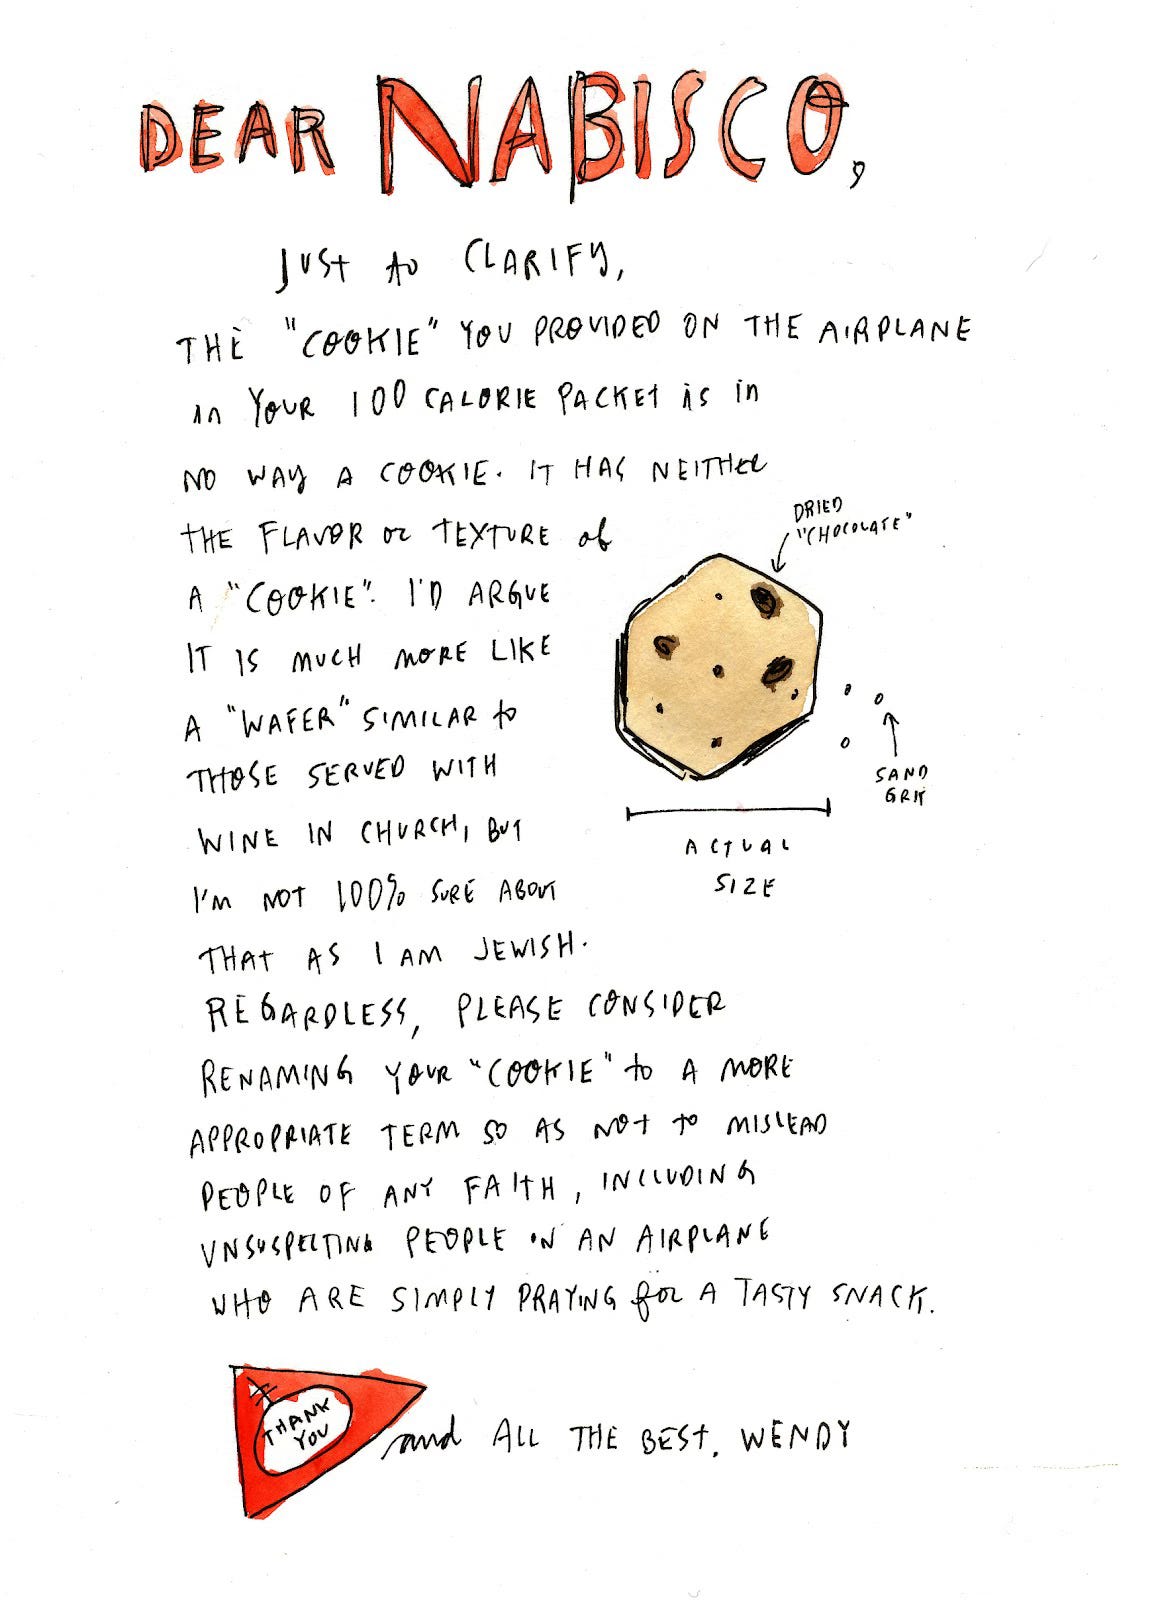 DEAR NABISCO,
JUST to CLARIFY,
THE "COOKIE" YOU PROVIDED ON THE AIRPLANE
in YOUR 100 CALORIE PACKET is in
NO WAY A COOKIE. IT HAS NEITHER
THE FLAVOR or TEXTURE of
A "COOKIE". I'D ARGUE
IT IS MUCH MORE LIKE
A "WAFER" SIMILAR to
THOSE SERVED WITH
WINE IN CHURCH, BUT
I'M NOT 100% SURE ABOUT
THAT AS I AM JEWISH.
DRIED
"CHOCOLATE"
SAND
GRIT
ACTUAL
SIZE
REGARDLESS, PLEASE CONSIDER
RENAMING YOUR "COOKIE" to A MORE
APPROPRIATE TERM SO AS NOT TO MISLEAD
PEOPLE OF ANY FAITH, INCLUDING
UNSUSPECTING PEOPLE ON AN AIRPLANE
WHO ARE SIMPLY PRAYING for A TASTY SNACK.
THANK
YOU
and ALL THE BEST, WENDY